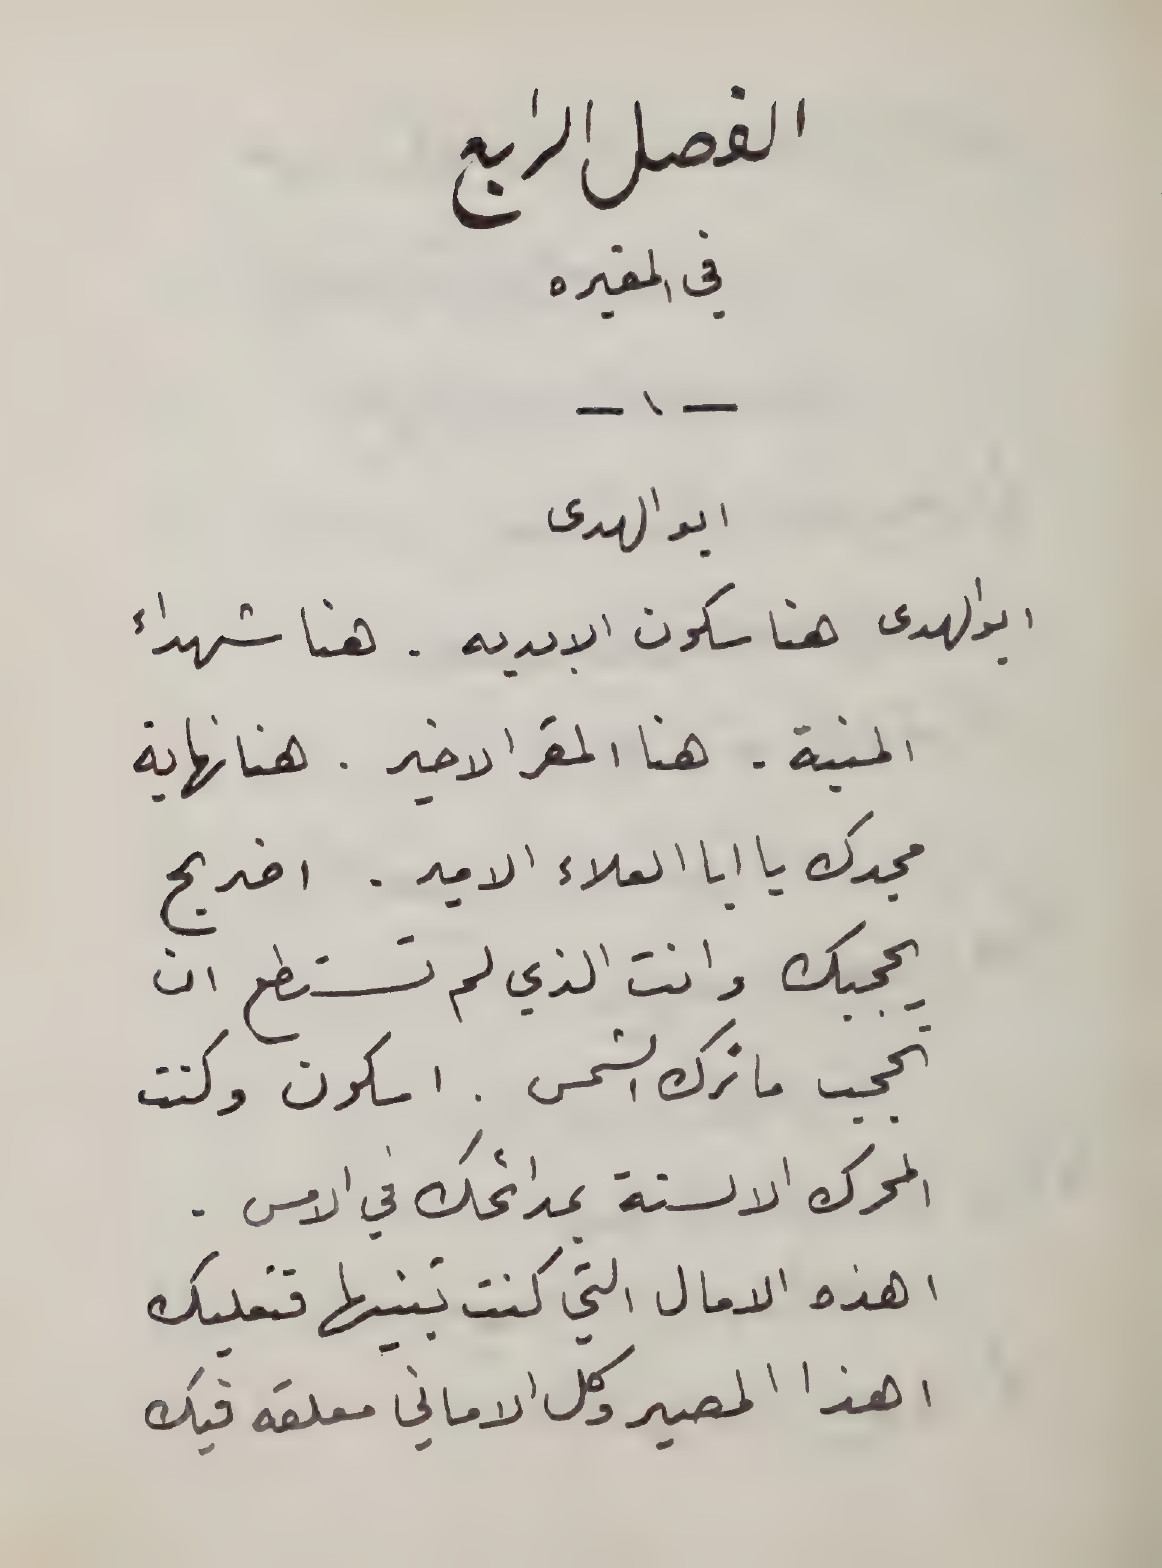 الفصل الرابع
في المقبره
— ١ —
ابو الهدى
ابو الهدى هنا سكون الابديه . هنا شهداء
المنية . هنا المقر الاخير . هنا نهاية
مجدك يا ابا العلاء الامير . اضريح
يحجبك وانت الذي لم تستطع ان
تحجب مأثرك الشمس . اسكون وكنت
المحرك الالسنة بمدائحك في الامس .
اهذه الامال التي كنت تبنيها فتعليك
اهذا المصير وكل الاماني معلقه فيك